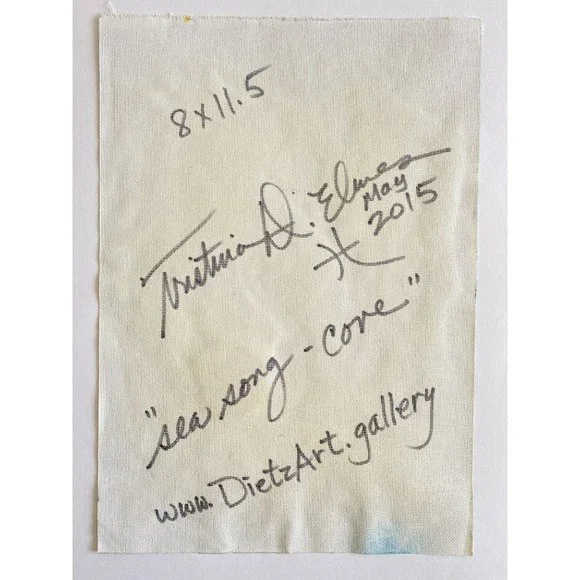 8x11.5
Tristina D. Elmes
May
2015
"sea song - cove"
www.DietzArt.gallery